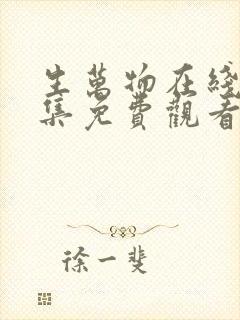 生萬物在綫
集免費觀看
徐一斐